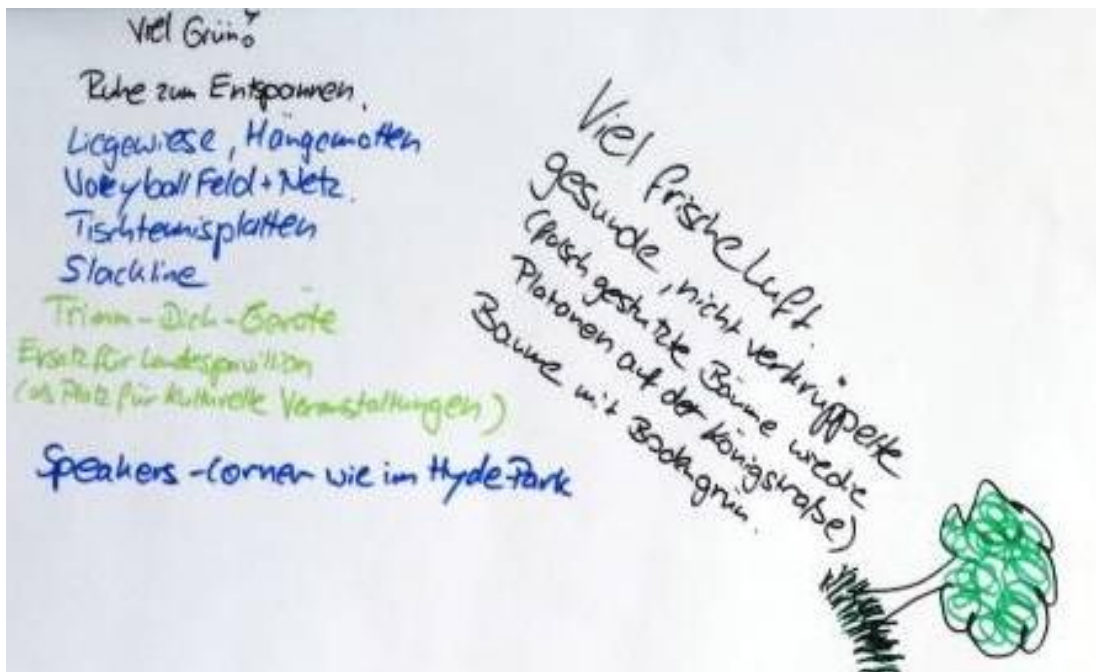 Viel Grün!
Ruhe zum Entspannen,
Liegewiese, Hängematten
Voleyball Feld + Netz.
Tischtennisplatten
Slackline
Trimm-Dich-Geräte
Ersatz für Landespavillion
(als Platz für kulturelle Veranstaltungen)
Speakers-Corner wie im Hyde Park
Viel frische Luft.
gesunde, nicht verkrüppelte
(falsch gestutzte Bäume wie die
Platanen auf der Königstraße)
Bäume mit Bodengrün.